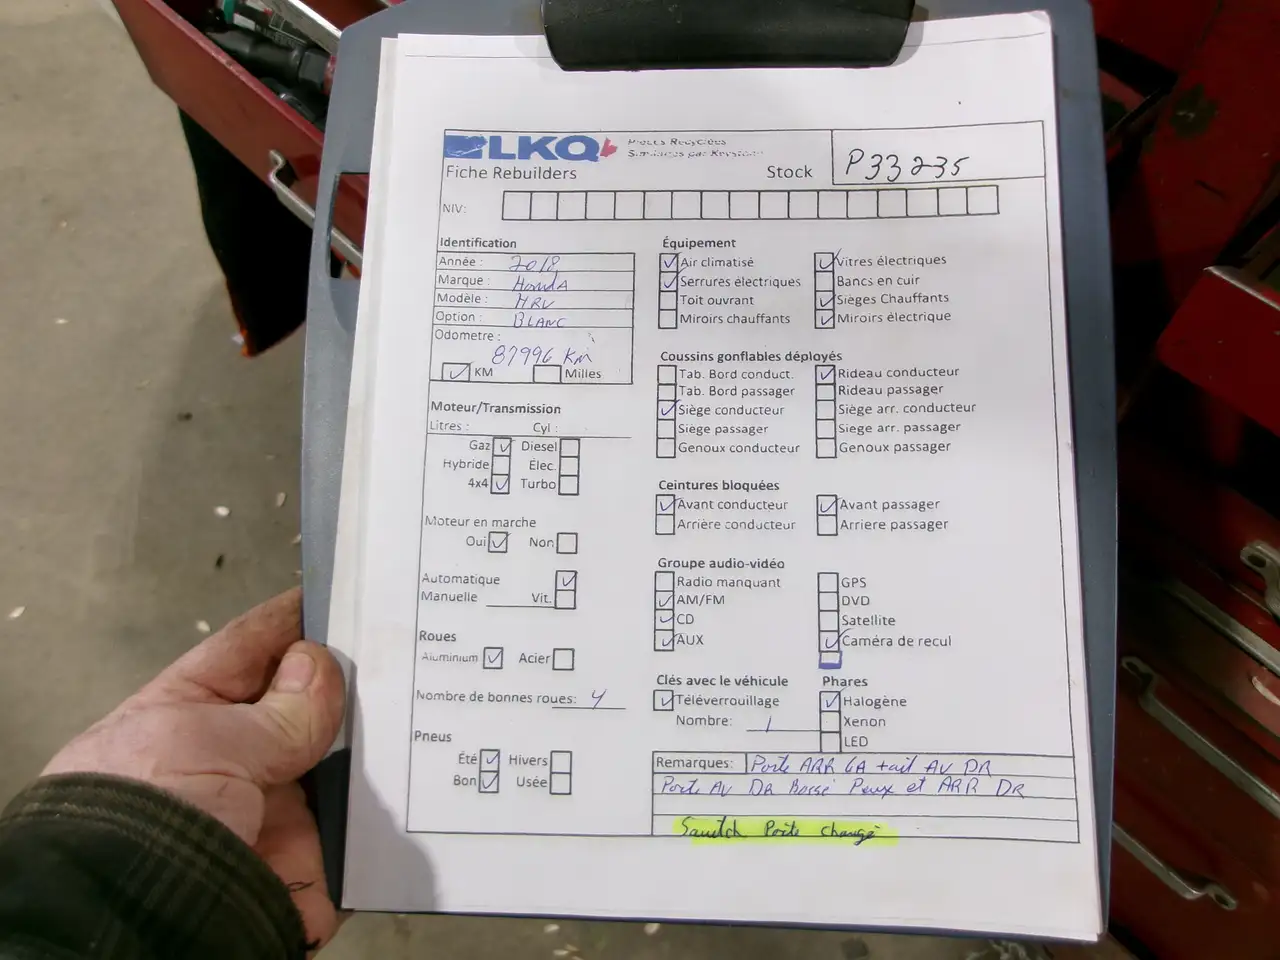 LKQ Pièces Recyclées
Surplus par Keystone
Fiche Rebuilders
Stock P33235
NIV:
Identification
Année : 2018
Marque : Honda
Modèle : HRV
Option : BLANC
Odometre :
87996 KM
KM Milles
Moteur/Transmission
Litres : Cyl :
Gaz Diesel
Hybride Élec.
4x4 Turbo
Moteur en marche
Oui Non
Automatique
Manuelle Vit.
Roues
Aluminium Acier
Nombre de bonnes roues: 4
Pneus
Été Hivers
Bon Usée
Équipement
Air climatisé Vitres électriques
Serrures électriques Bancs en cuir
Toit ouvrant Sièges Chauffants
Miroirs chauffants Miroirs électrique
Coussins gonflables déployés
Tab. Bord conduct. Rideau conducteur
Tab. Bord passager Rideau passager
Siège conducteur Siège arr. conducteur
Siège passager Siege arr. passager
Genoux conducteur Genoux passager
Ceintures bloquées
Avant conducteur Avant passager
Arrière conducteur Arriere passager
Groupe audio-vidéo
Radio manquant GPS
AM/FM DVD
CD Satellite
AUX Caméra de recul
Clés avec le véhicule Phares
Téléverrouillage Halogène
Nombre: 1 Xenon
LED
Remarques: Porte ARR GA + AV DR
Porte AV DR Bosse et ARR DR
Porte changé